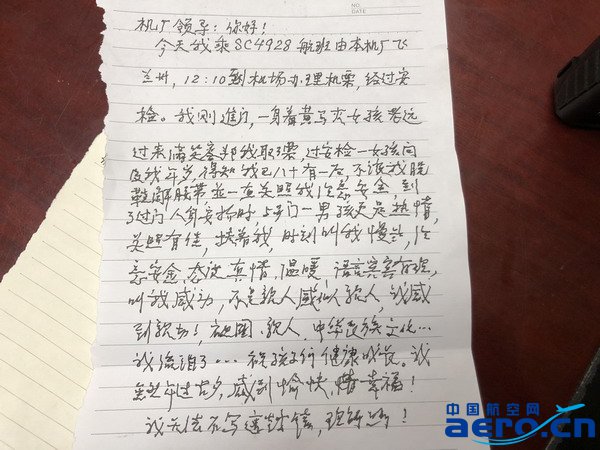 NO.
DATE
机厂领导：你好！
今天我乘SC4928航班由本机厂飞
兰州，12:10到机场办理机票，经过安
检。我刚进门，一身着黄马夹女孩老远
过来满笑容帮我取票，过安检一女孩问
我年岁，得知我已八十有一后，不让我脱
鞋解腰带，并一直关照我注意安全 到
了过门 人身安检时 5号门一男孩更是热情，
关照有佳，扶着我，时刻叫我慢点，注
意安全，态度真情，温暖，语言
叫我感动，不是亲人感似亲人，我感
到 祖国、亲人、中华民族文化…
我流泪了… 祝孩子们健康成长。我
虽年过古，感到愉快，幸福！
我无法不写这封信，
中国航空网
aero.cn